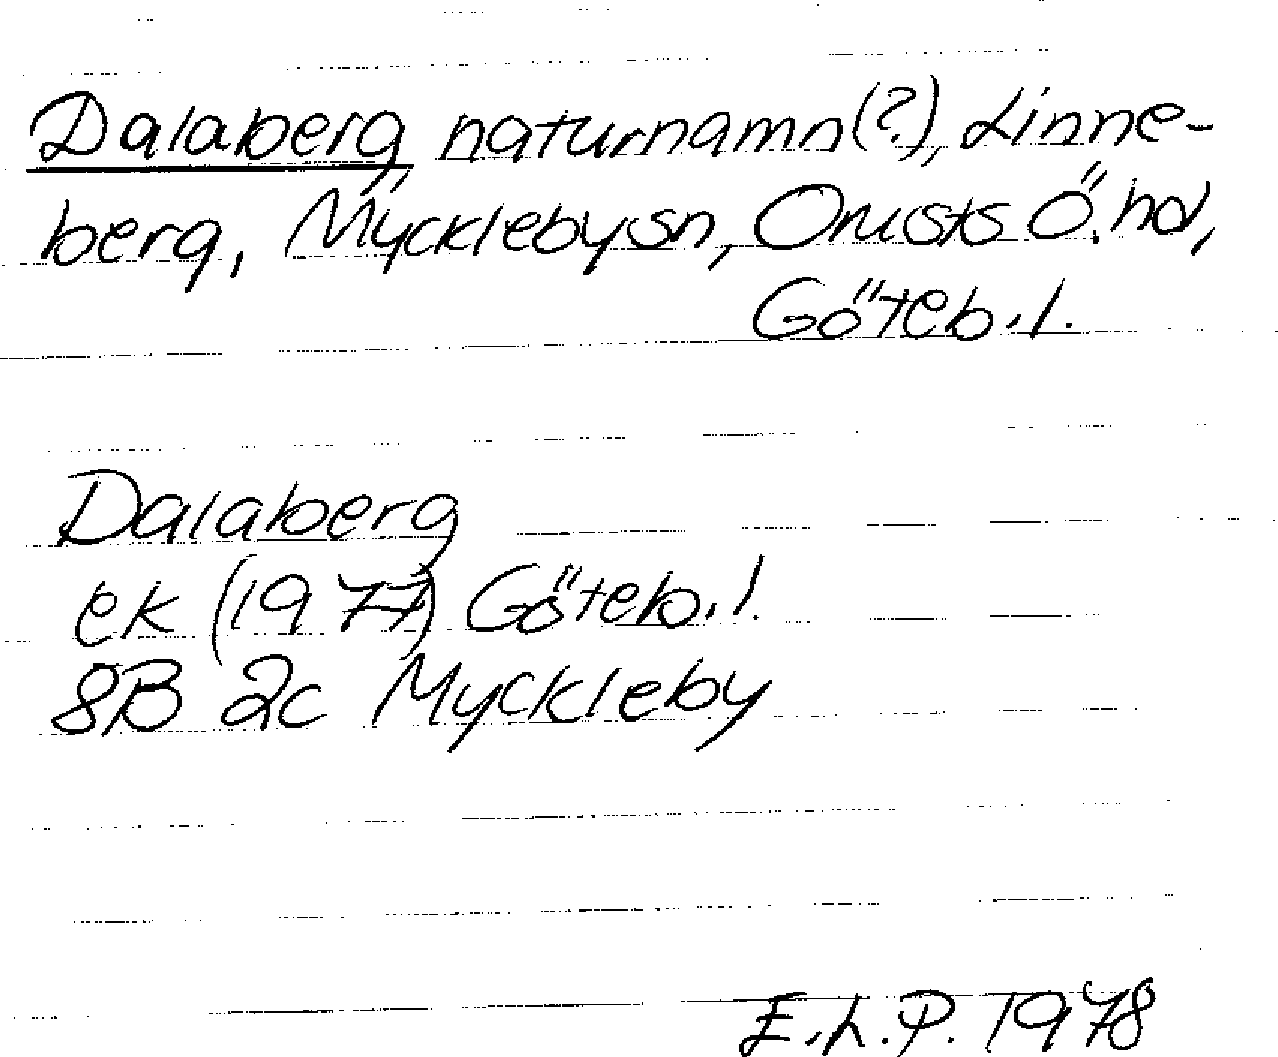 Dalaberg naturnamn(?), Linne-
berg, Mycklebysn, Orusts Ö. hd,
Göteb. l.
Dalaberg
ek (1977) Göteb. l.
8B 2c Myckleby
E.L.P. 1978